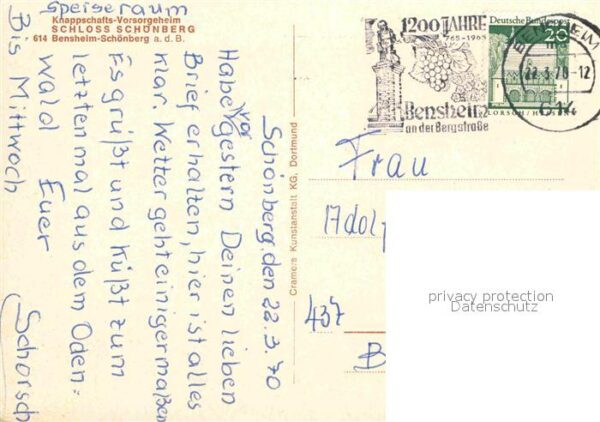 Speiseraum
Knappschafts-Vorsorgeheim
SCHLOSS SCHÖNBERG
614 Bensheim-Schönberg a. d. B.
Schönberg, den 22.3.70
Habe vorgestern Deinen lieben
Brief erhalten, hier ist alles
klar. Wetter geht einigermaßen
Es grüßt und küßt zum
letzten mal aus dem Oden=
wald Euer
Bis Mittwoch Schorsch
Cramers Kunstanstalt KG, Dortmund
1200 JAHRE
765-1965
Bensheim
an der Bergstraße
Deutsche Bundespost
20
LORSCH/HESSEN
BENSHEIM
22.3.70-12
614
Frau
Adol
437
B
privacy protection
Datenschutz